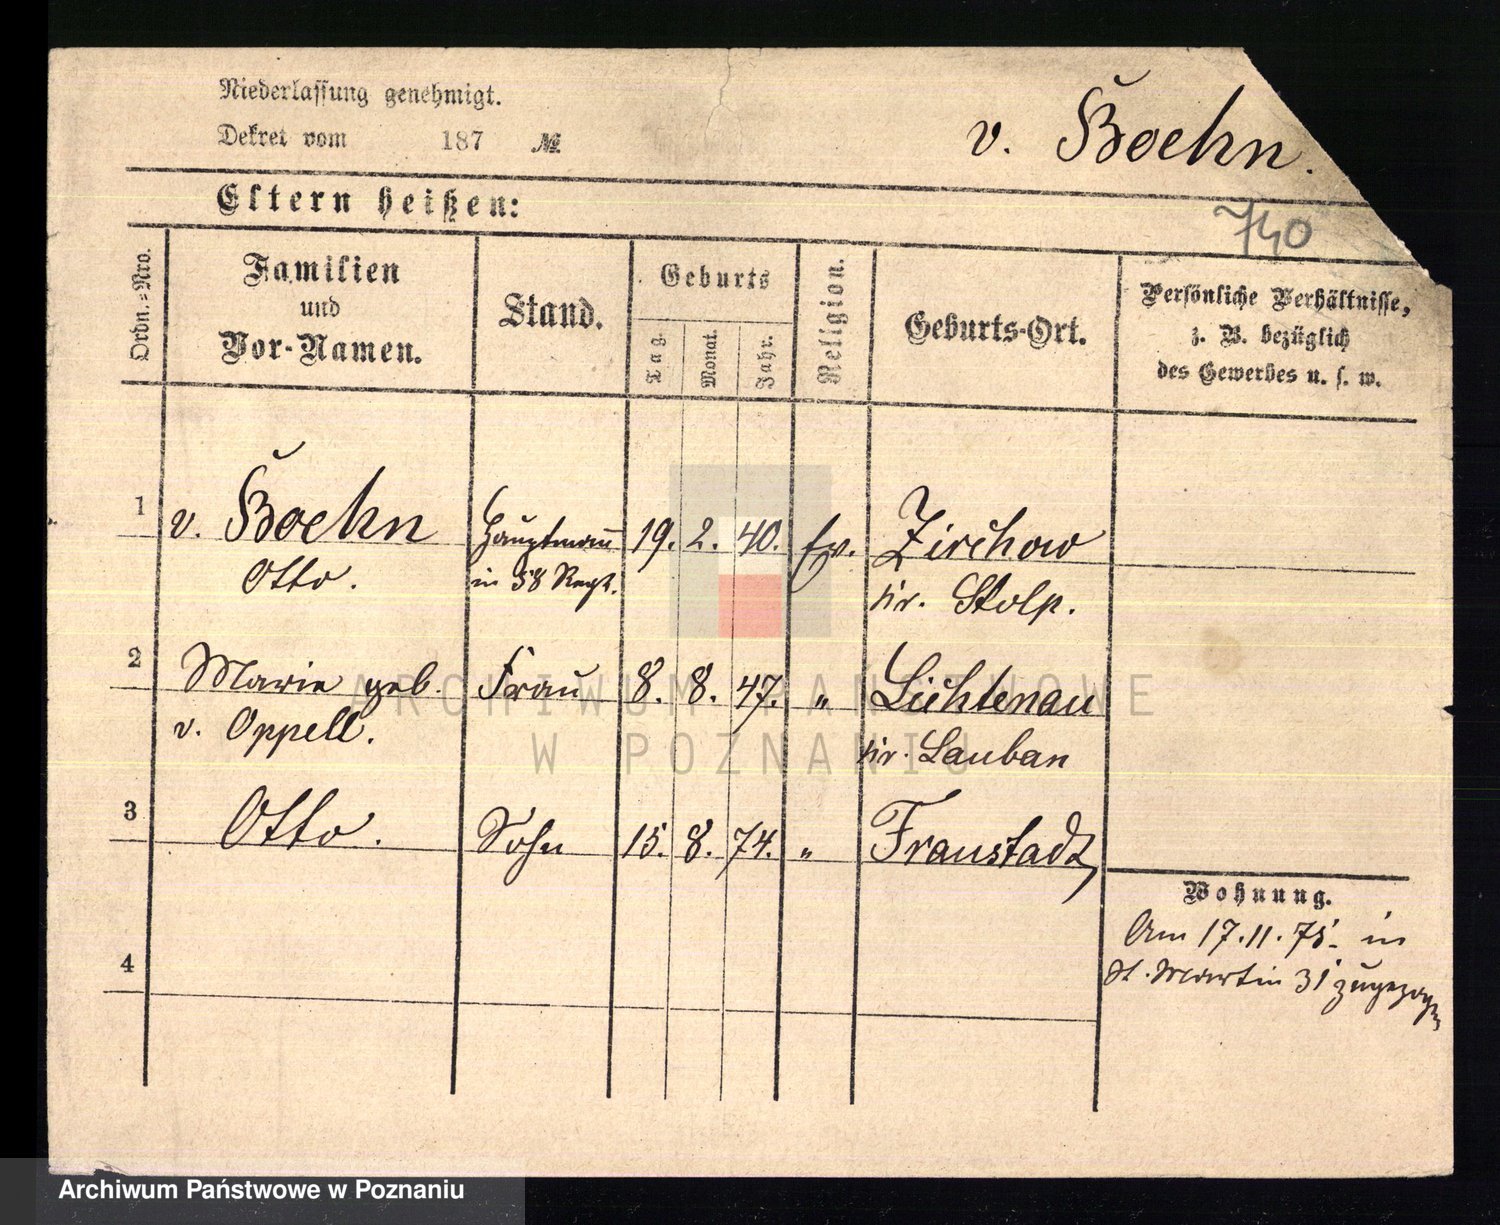 Niederlassung genehmigt.
Dekret vom 187 №
v. Boehn.
Eltern heißen:
740
Ordn.-Nro.
Familien
und
Vor-Namen.
Stand.
Geburts
Tag.
Monat.
Jahr.
Religion.
Geburts-Ort.
Persönliche Verhältnisse,
z. B. bezüglich
des Gewerbes u. s. w.
1 v. Boehn Hauptmann 19. 2. 40. Ev. Zirchow
Otto. in 58 Regt. Kr. Stolp.
2 Marie geb. Frau 8. 8. 47. " Lichtenau
v. Oppell. Kr. Lauban
3 Otto. Sohn 15. 8. 74. " Fraustadt
Wohnung.
Am 17.11.75. in
St. Martin 31 zugezogen
4
ARCHIWUM PAŃSTWOWE
W POZNANIU
Archiwum Państwowe w Poznaniu